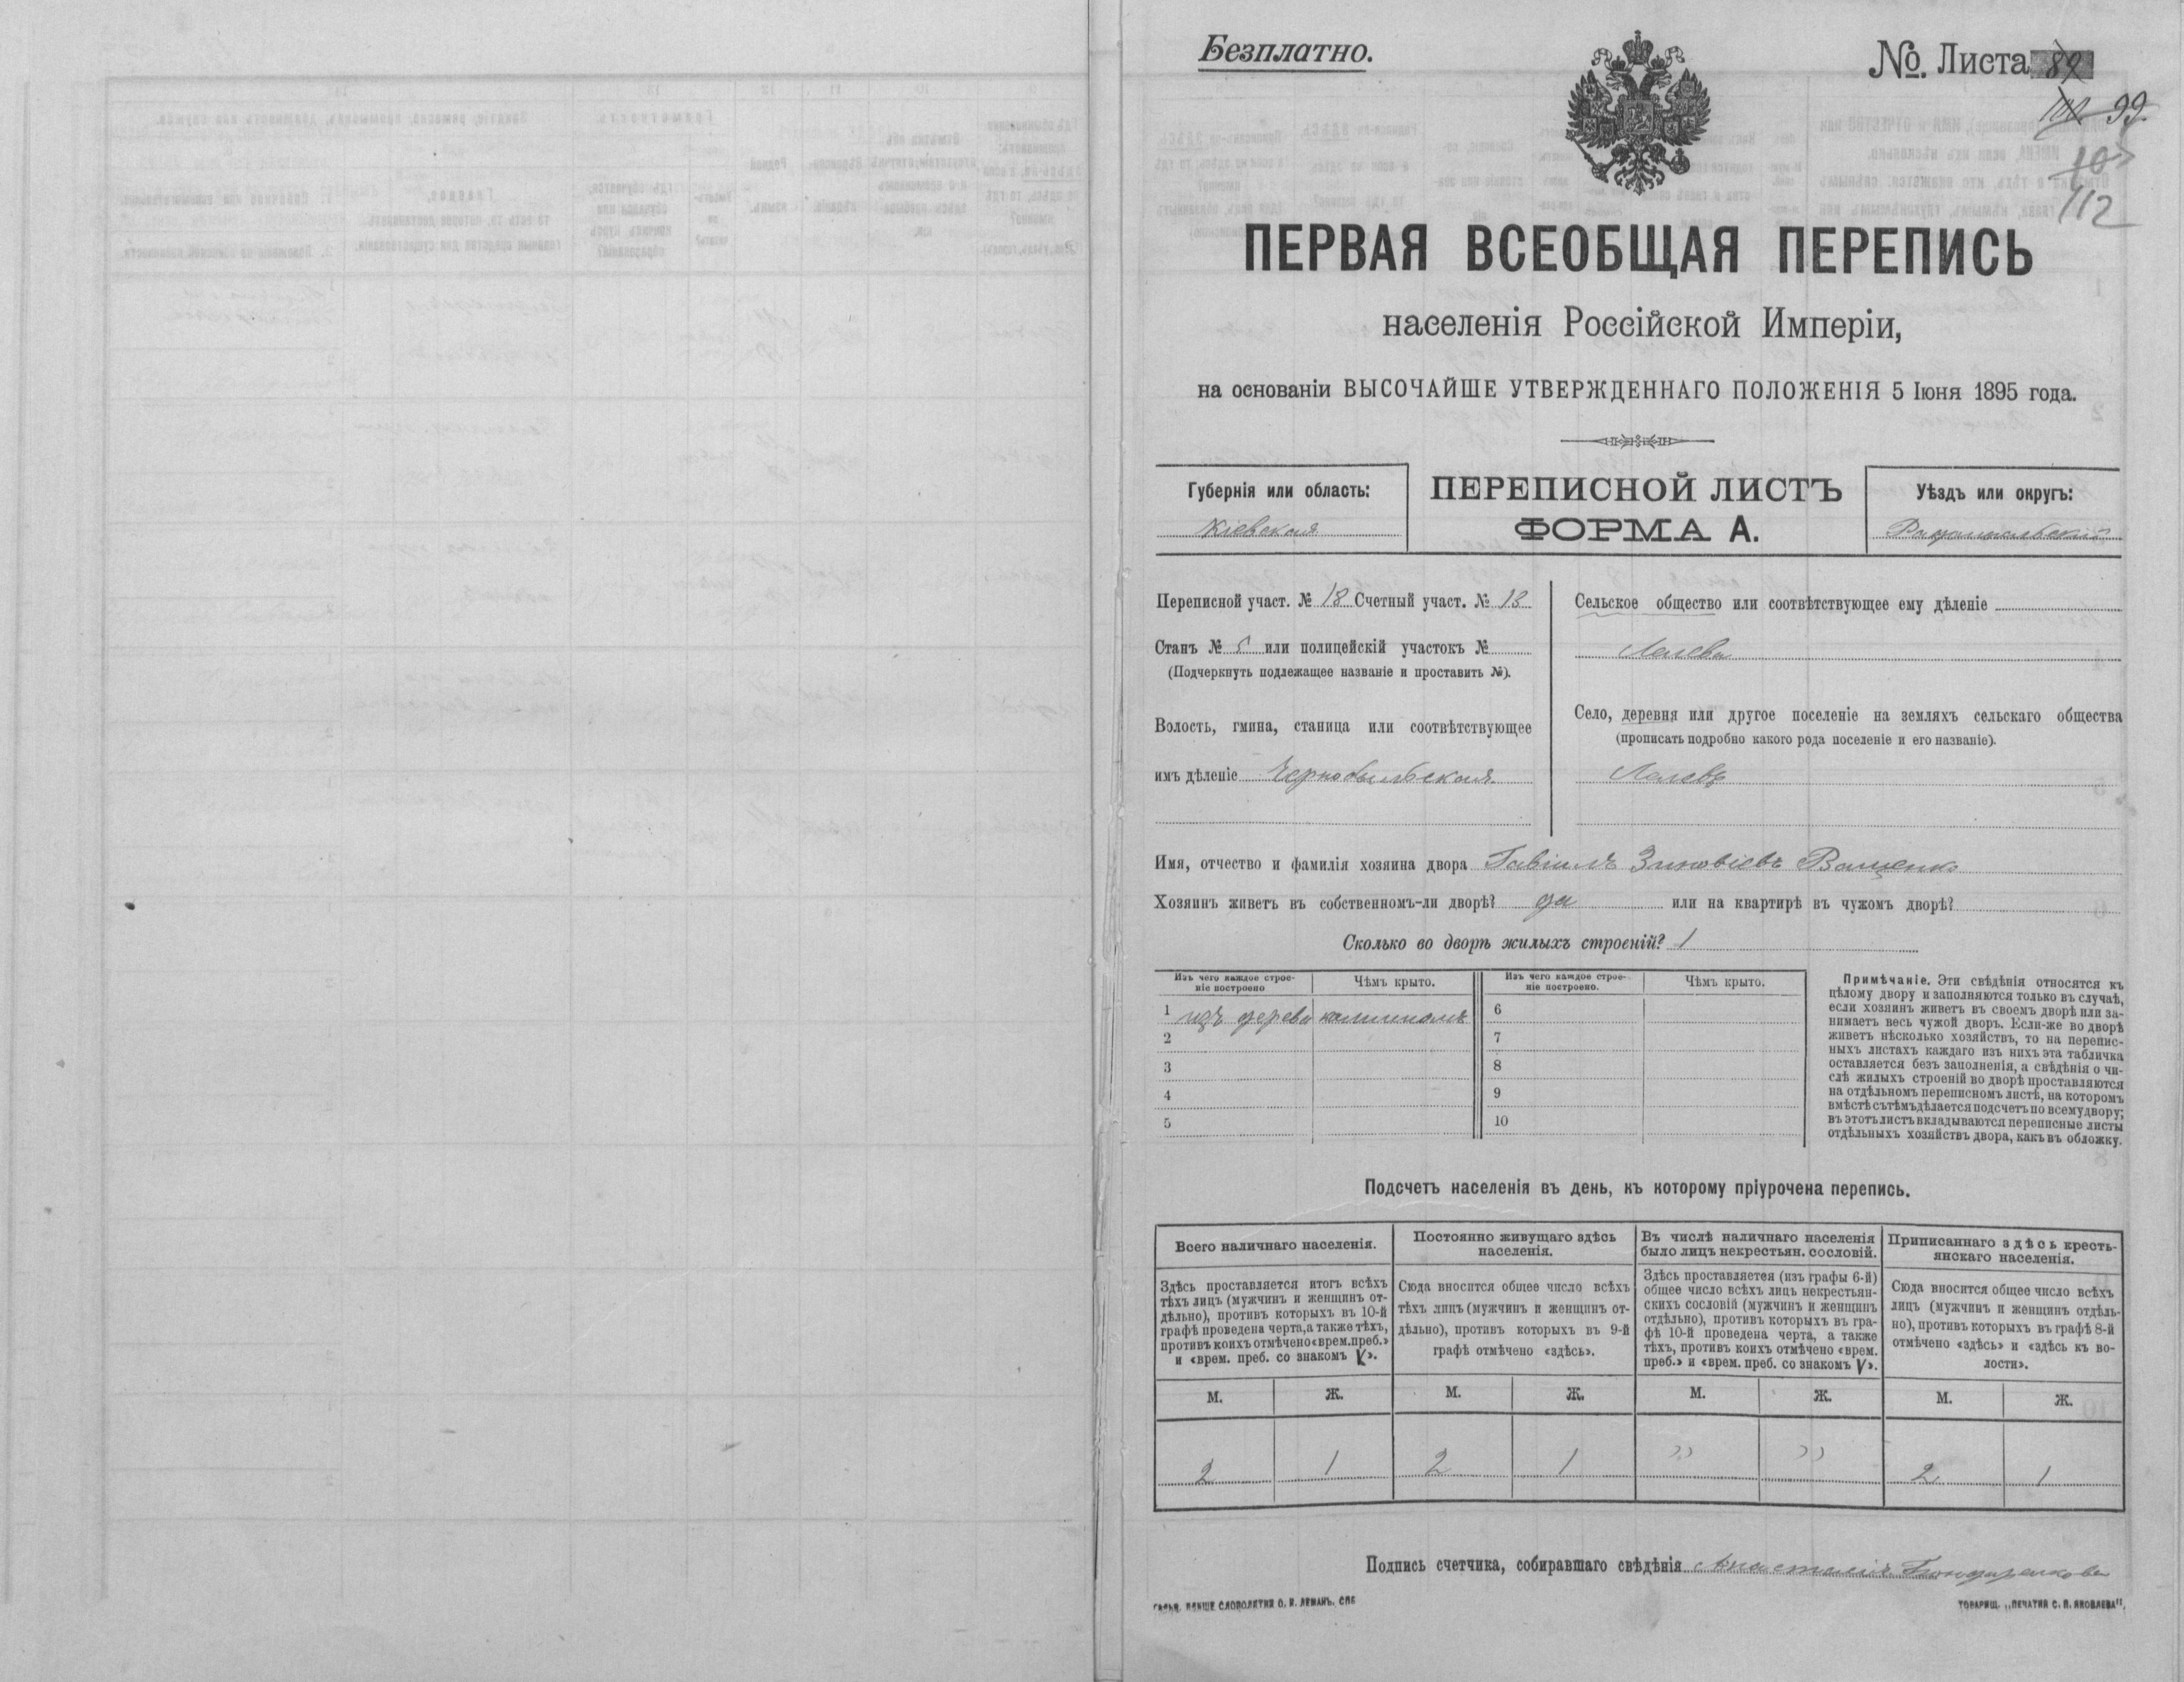 Безплатно.
№. Листа 89
99.
105
112
ПЕРВАЯ ВСЕОБЩАЯ ПЕРЕПИСЬ
населенія Россійской Имперіи,
на основаніи ВЫСОЧАЙШЕ УТВЕРЖДЕННАГО ПОЛОЖЕНІЯ 5 Іюня 1895 года.
Губернія или область:
Кіевская
ПЕРЕПИСНОЙ ЛИСТЪ
ФОРМА А.
Уѣздъ или округъ:
Радомысльскій
Переписной участ. № 18 Счетный участ. № 13
Станъ № 5 или полицейскій участокъ №
(Подчеркнуть подлежащее названіе и проставить №).
Волость, гмина, станица или соотвѣтствующее
имъ дѣленіе Чернобыльская
Сельское общество или соотвѣтствующее ему дѣленіе
Лелева
Село, деревня или другое поселеніе на земляхъ сельскаго общества
(прописать подробно какого рода поселеніе и его названіе).
Лелевъ
Имя, отчество и фамилія хозяина двора Гавіилъ Зиновіевъ Ващенко
Хозяинъ живетъ въ собственномъ-ли дворѣ? да или на квартирѣ въ чужомъ дворѣ?
Сколько во дворѣ жилыхъ строеній? 1
Изъ чего каждое строе-
ніе построено
Чѣмъ крыто.
Изъ чего каждое строе-
ніе построено.
Чѣмъ крыто.
1 изъ дерева
6
2
7
3
8
4
9
5
10
Примѣчаніе. Эти свѣдѣнія относятся къ
цѣлому двору и заполняются только въ случаѣ,
если хозяинъ живетъ въ своемъ дворѣ или за-
нимаетъ весь чужой дворъ. Если-же во дворѣ
живетъ нѣсколько хозяйствъ, то на перепис-
ныхъ листахъ каждаго изъ нихъ эта табличка
оставляется безъ заполненія, а свѣдѣнія о чи-
слѣ жилыхъ строеній во дворѣ проставляются
на отдѣльномъ переписномъ листѣ, на которомъ
вмѣстѣ съ тѣмъ дѣлается подсчетъ по всему двору;
въ этотъ листъ вкладываются переписные листы
отдѣльныхъ хозяйствъ двора, какъ въ обложку.
Подсчетъ населенія въ день, къ которому пріурочена перепись.
Всего наличнаго населенія.
Здѣсь проставляется итогъ всѣхъ
тѣхъ лицъ (мужчинъ и женщинъ от-
дѣльно), противъ которыхъ въ 10-й
графѣ проведена черта, а также тѣхъ,
противъ коихъ отмѣчено «врем. преб.»
и «врем. преб. со знакомъ V».
Постоянно живущаго здѣсь
населенія.
Сюда вносится общее число всѣхъ
тѣхъ лицъ (мужчинъ и женщинъ от-
дѣльно), противъ которыхъ въ 9-й
графѣ отмѣчено «здѣсь».
Въ числѣ наличнаго населенія
было лицъ некрестьян. сословій.
Здѣсь проставляется (изъ графы 6-й)
общее число всѣхъ лицъ некрестьян-
скихъ сословій (мужчинъ и женщинъ
отдѣльно), противъ которыхъ въ гра-
фѣ 10-й проведена черта, а также
тѣхъ, противъ коихъ отмѣчено «врем.
преб.» и «врем. преб. со знакомъ V».
Приписаннаго здѣсь кресть-
янскаго населенія.
Сюда вносится общее число всѣхъ
лицъ (мужчинъ и женщинъ отдѣль-
но), противъ которыхъ въ графѣ 8-й
отмѣчено «здѣсь» и «здѣсь къ во-
лости».
М. Ж. М. Ж. М. Ж. М. Ж.
2 1 2 1 " " 2 1
Подпись счетчика, собиравшаго свѣдѣнія
СЛОВОЛИТНИ О. И. ЛЕМАНЪ. СПБ
ТОВАРИЩ. „ПЕЧАТНЯ С. П. ЯКОВЛЕВА".